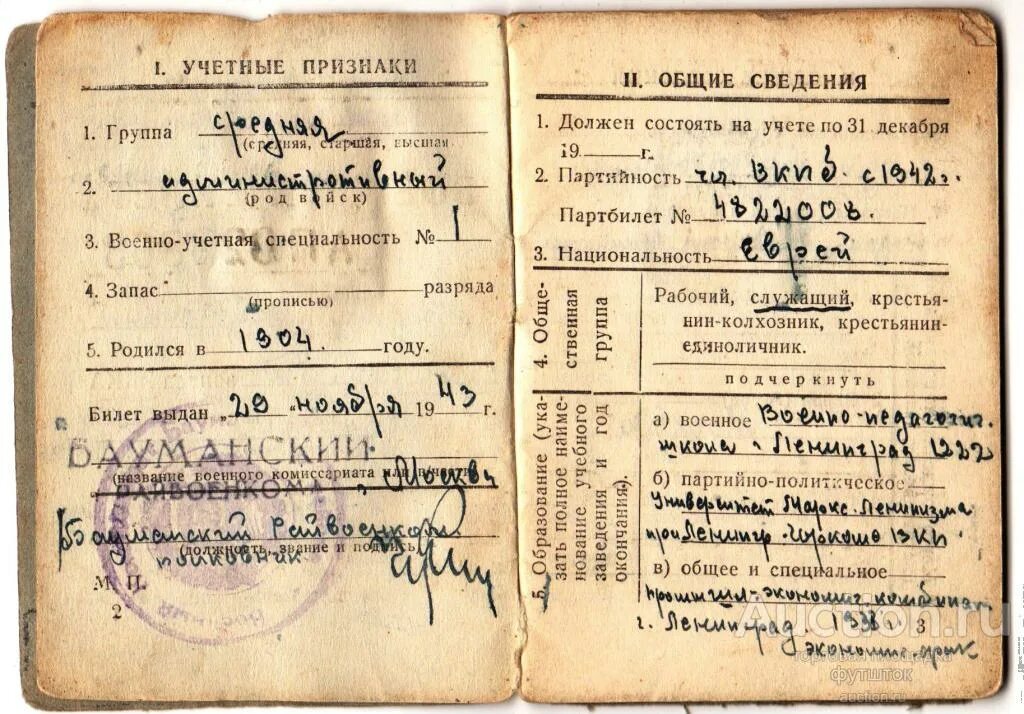 I. УЧЕТНЫЕ ПРИЗНАКИ
1. Группа средняя
(средняя, старшая, высшая
2. административный
(род войск)
3. Военно-учетная специальность № 1
4. Запас разряда
(прописью)
5. Родился в 1904. году.
Билет выдан „29 "ноября 1943 г.
БАУМАНСКИЙ
(название военного комиссариата или в/части)
РАЙВОЕНКОМАТ г. Москвы
Бауманский Райвоенком
(должность, звание и подпись)
полковник
М. П.
2
II. ОБЩИЕ СВЕДЕНИЯ
1. Должен состоять на учете по 31 декабря
19 г.
2. Партийность чл. ВКПб. с 1942 г.
Партбилет № 4822008.
3. Национальность еврей
4. Общественная группа
Рабочий, служащий, крестья-
нин-колхозник, крестьянин-
единоличник.
подчеркнуть
5. Образование (ука-
зать полное наиме-
нование учебного
заведения и год
окончания).
а) военное Военно-педагогич.
школа г. Ленинград 1922
б) партийно-политическое
Университет Маркс. Ленинизма
при Ленингр. Горкоме ВКП
в) общее и специальное
Промыш-экономич комбинат
г. Ленинград. 3
Auction.ru
торговая площадка
футшток
auction.ru